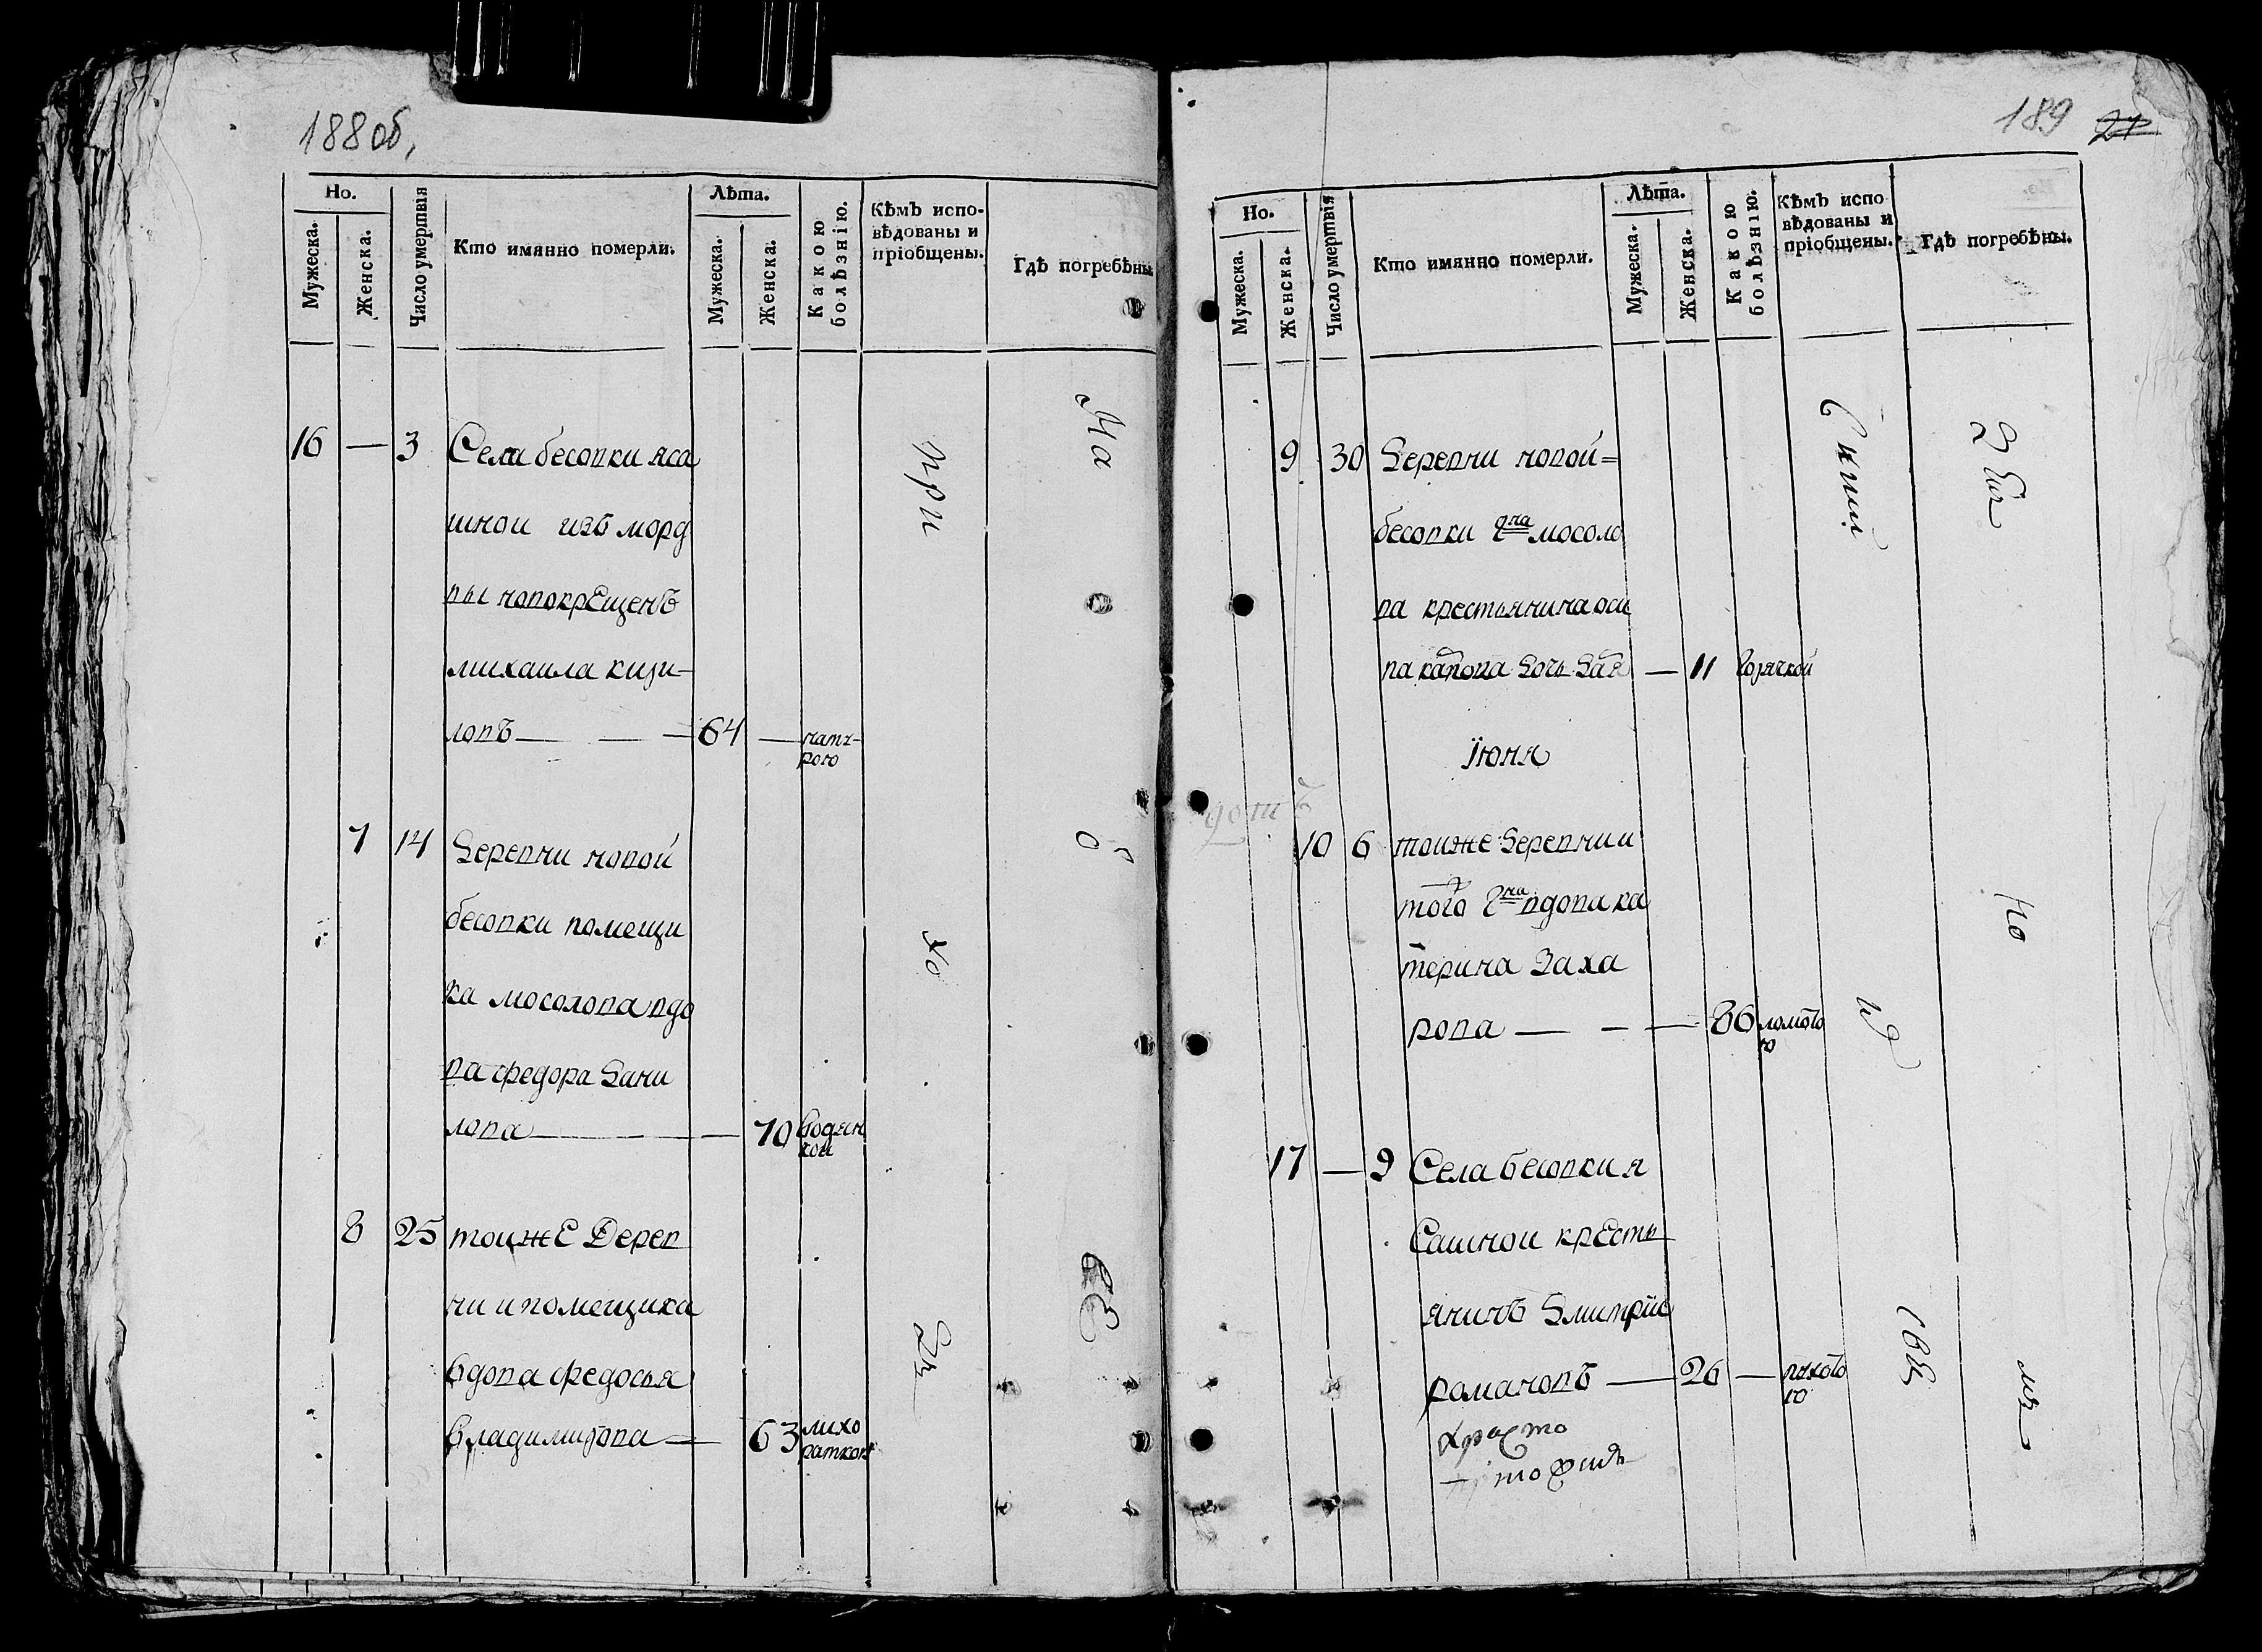 188 об.
Но.
Мужеска.
Женска.
Число умертвія
Кто имянно померли.
Лѣта.
Мужеска.
Женска.
Какою болѣзнію.
Кѣмъ испо-
вѣдованы и
пріобщены.
Гдѣ погребѣны
16 — 3 Села бесовки яса
шнои изъ морд
вы новокрещенъ
михаила кири-
ловъ — — — 64 —
7 14 Деревни новой
бесовки помещи
ка мосолова вдо
ва федора дани
лова — — — 70 водян
кои
8 25 тоиже Дерев
ни и помещика
вдова федосья
владимирова — 63 лихо
раткои
При
хо
На
о
189 21
Но.
Мужеска.
Женска.
Число умертвія
Кто имянно померли.
Лѣта.
Мужеска.
Женска.
Какою болѣзнію.
Кѣмъ испо
вѣдованы и
пріобщены.
Гдѣ погребѣны.
9 30 Деревни новой
бесовки гна мосоло
ва крестьянина оси
па дочь — 11 горячкой
Їюня
10 6 тоиже деревни и
того гна вдова ка
терина Заха
рова — — — 86 ломото
ю
17 — 9 Села бесовки я
сашнои кресть
янинъ дмитріи
романовъ — 26 —
Скии